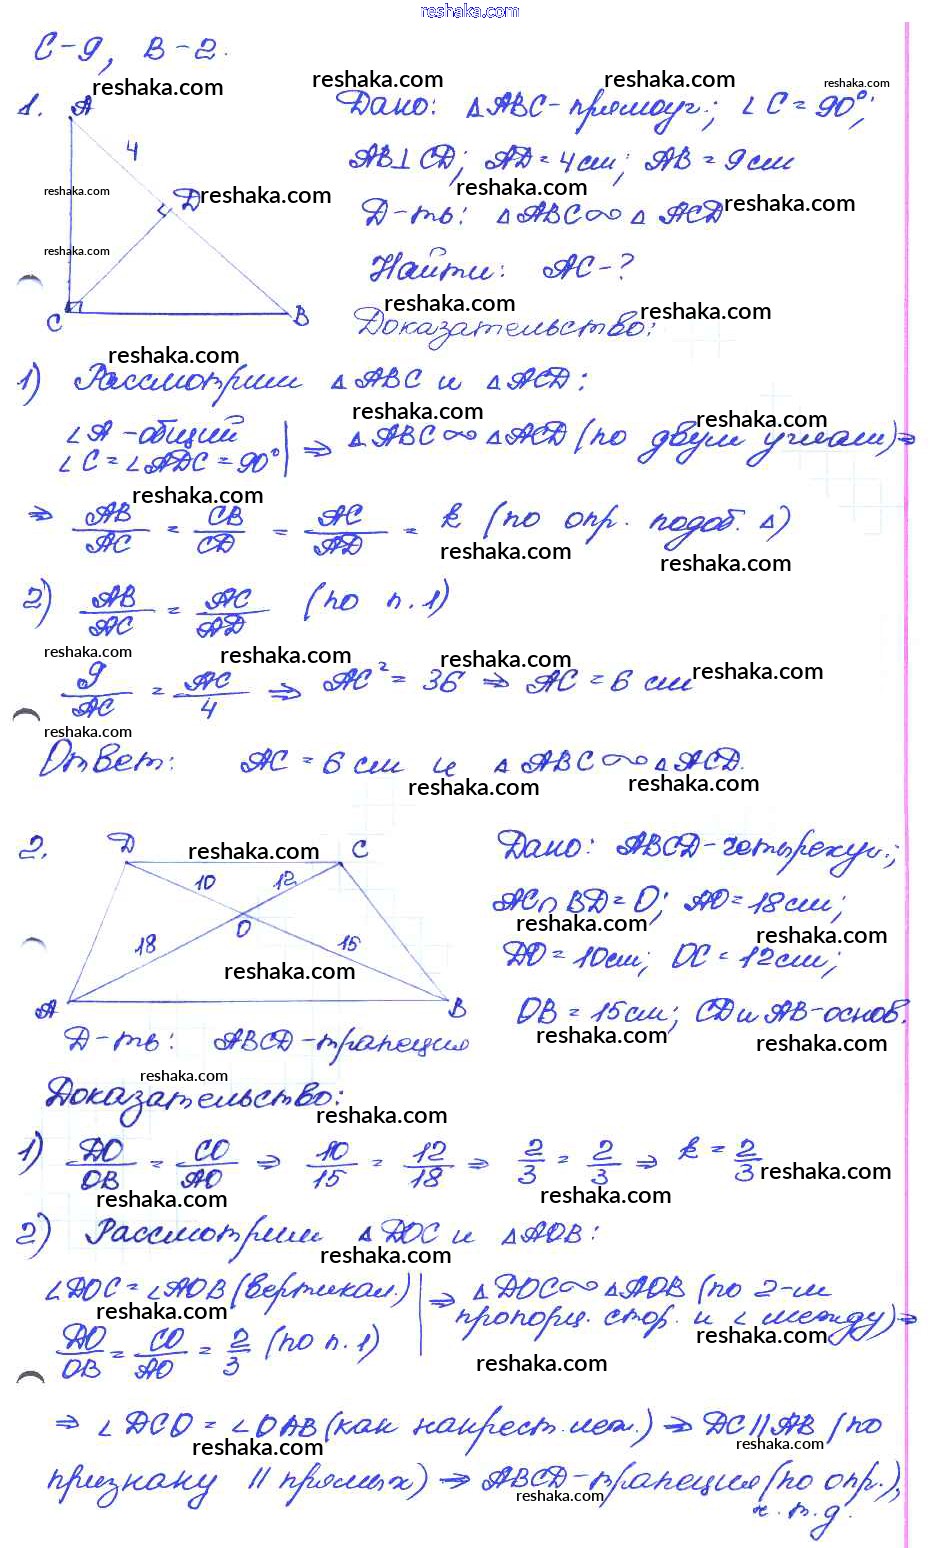 reshaka.com
С-9, В-2.
1.
A
4
D
C
B
Дано: △ABC-прямоуг.; ∠C = 90°;
AB⊥CD; AD = 4см; AB = 9см
Д-ть: △ABC∾△ACD
Найти: AC-?
Доказательство:
1) Рассмотрим △ABC и △ACD:
∠A-общий
∠C = ∠ADC = 90° | ⇒ △ABC∾△ACD (по двум углам) ⇒
⇒ AB/AC = CB/CD = AC/AD = k (по опр. подоб. △)
2) AB/AC = AC/AD (по п.1)
9/AC = AC/4 ⇒ AC² = 36 ⇒ AC = 6 см
Ответ: AC = 6 см и △ABC∾△ACD.
2.
D
C
10
12
O
18
15
A
B
Дано: ABCD-четырехуг.;
AC∩BD=O; AO=18см;
DO = 10см; OC = 12см;
OB = 15см; CD и AB-основ.
Д-ть: ABCD-трапеция
Доказательство:
1) DO/OB = CO/AO ⇒ 10/15 = 12/18 ⇒ 2/3 = 2/3 ⇒ k = 2/3
2) Рассмотрим △DOC и △AOB:
∠DOC = ∠AOB (вертикал.) | ⇒ △DOC∾△AOB (по 2-м
DO/OB = CO/AO = 2/3 (по п.1) | пропорц. стор. и ∠ между) ⇒
⇒ ∠DCO = ∠OAB (как накрест. леж.) ⇒ DC||AB (по
признаку || прямых) ⇒ ABCD-трапеция (по опр.),
ч.т.д.